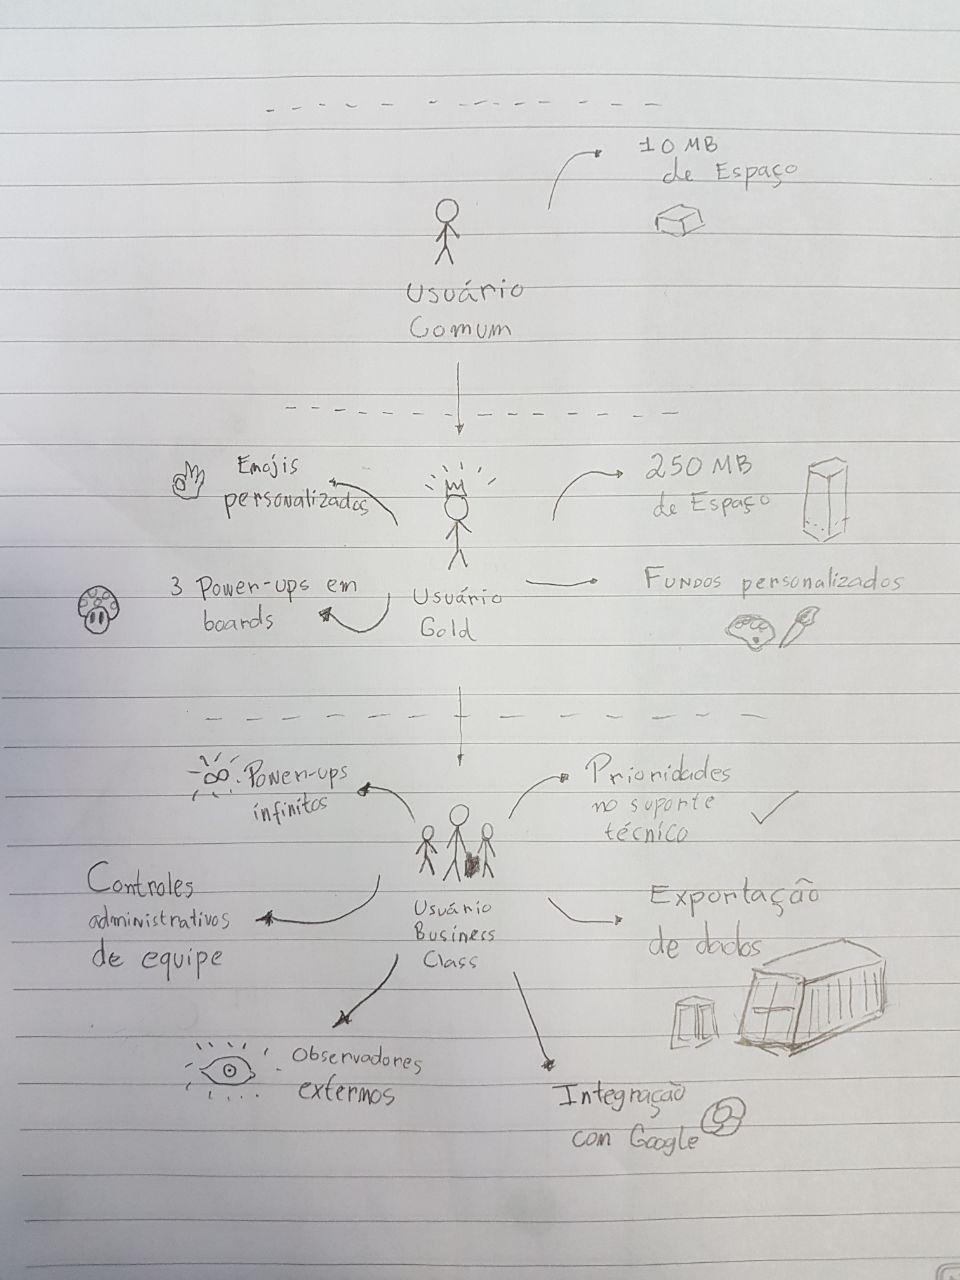 10 MB
de Espaço
Usuário
Comum
Emojis
personalizados
250 MB
de Espaço
3 Power-ups em
boards
Usuário
Gold
Fundos personalizados
Power-ups
infinitos
Prioridades
no suporte
técnico
Controles
administrativos
de equipe
Usuário
Business
Class
Exportação
de dados
Observadores
externos
Integração
com Google